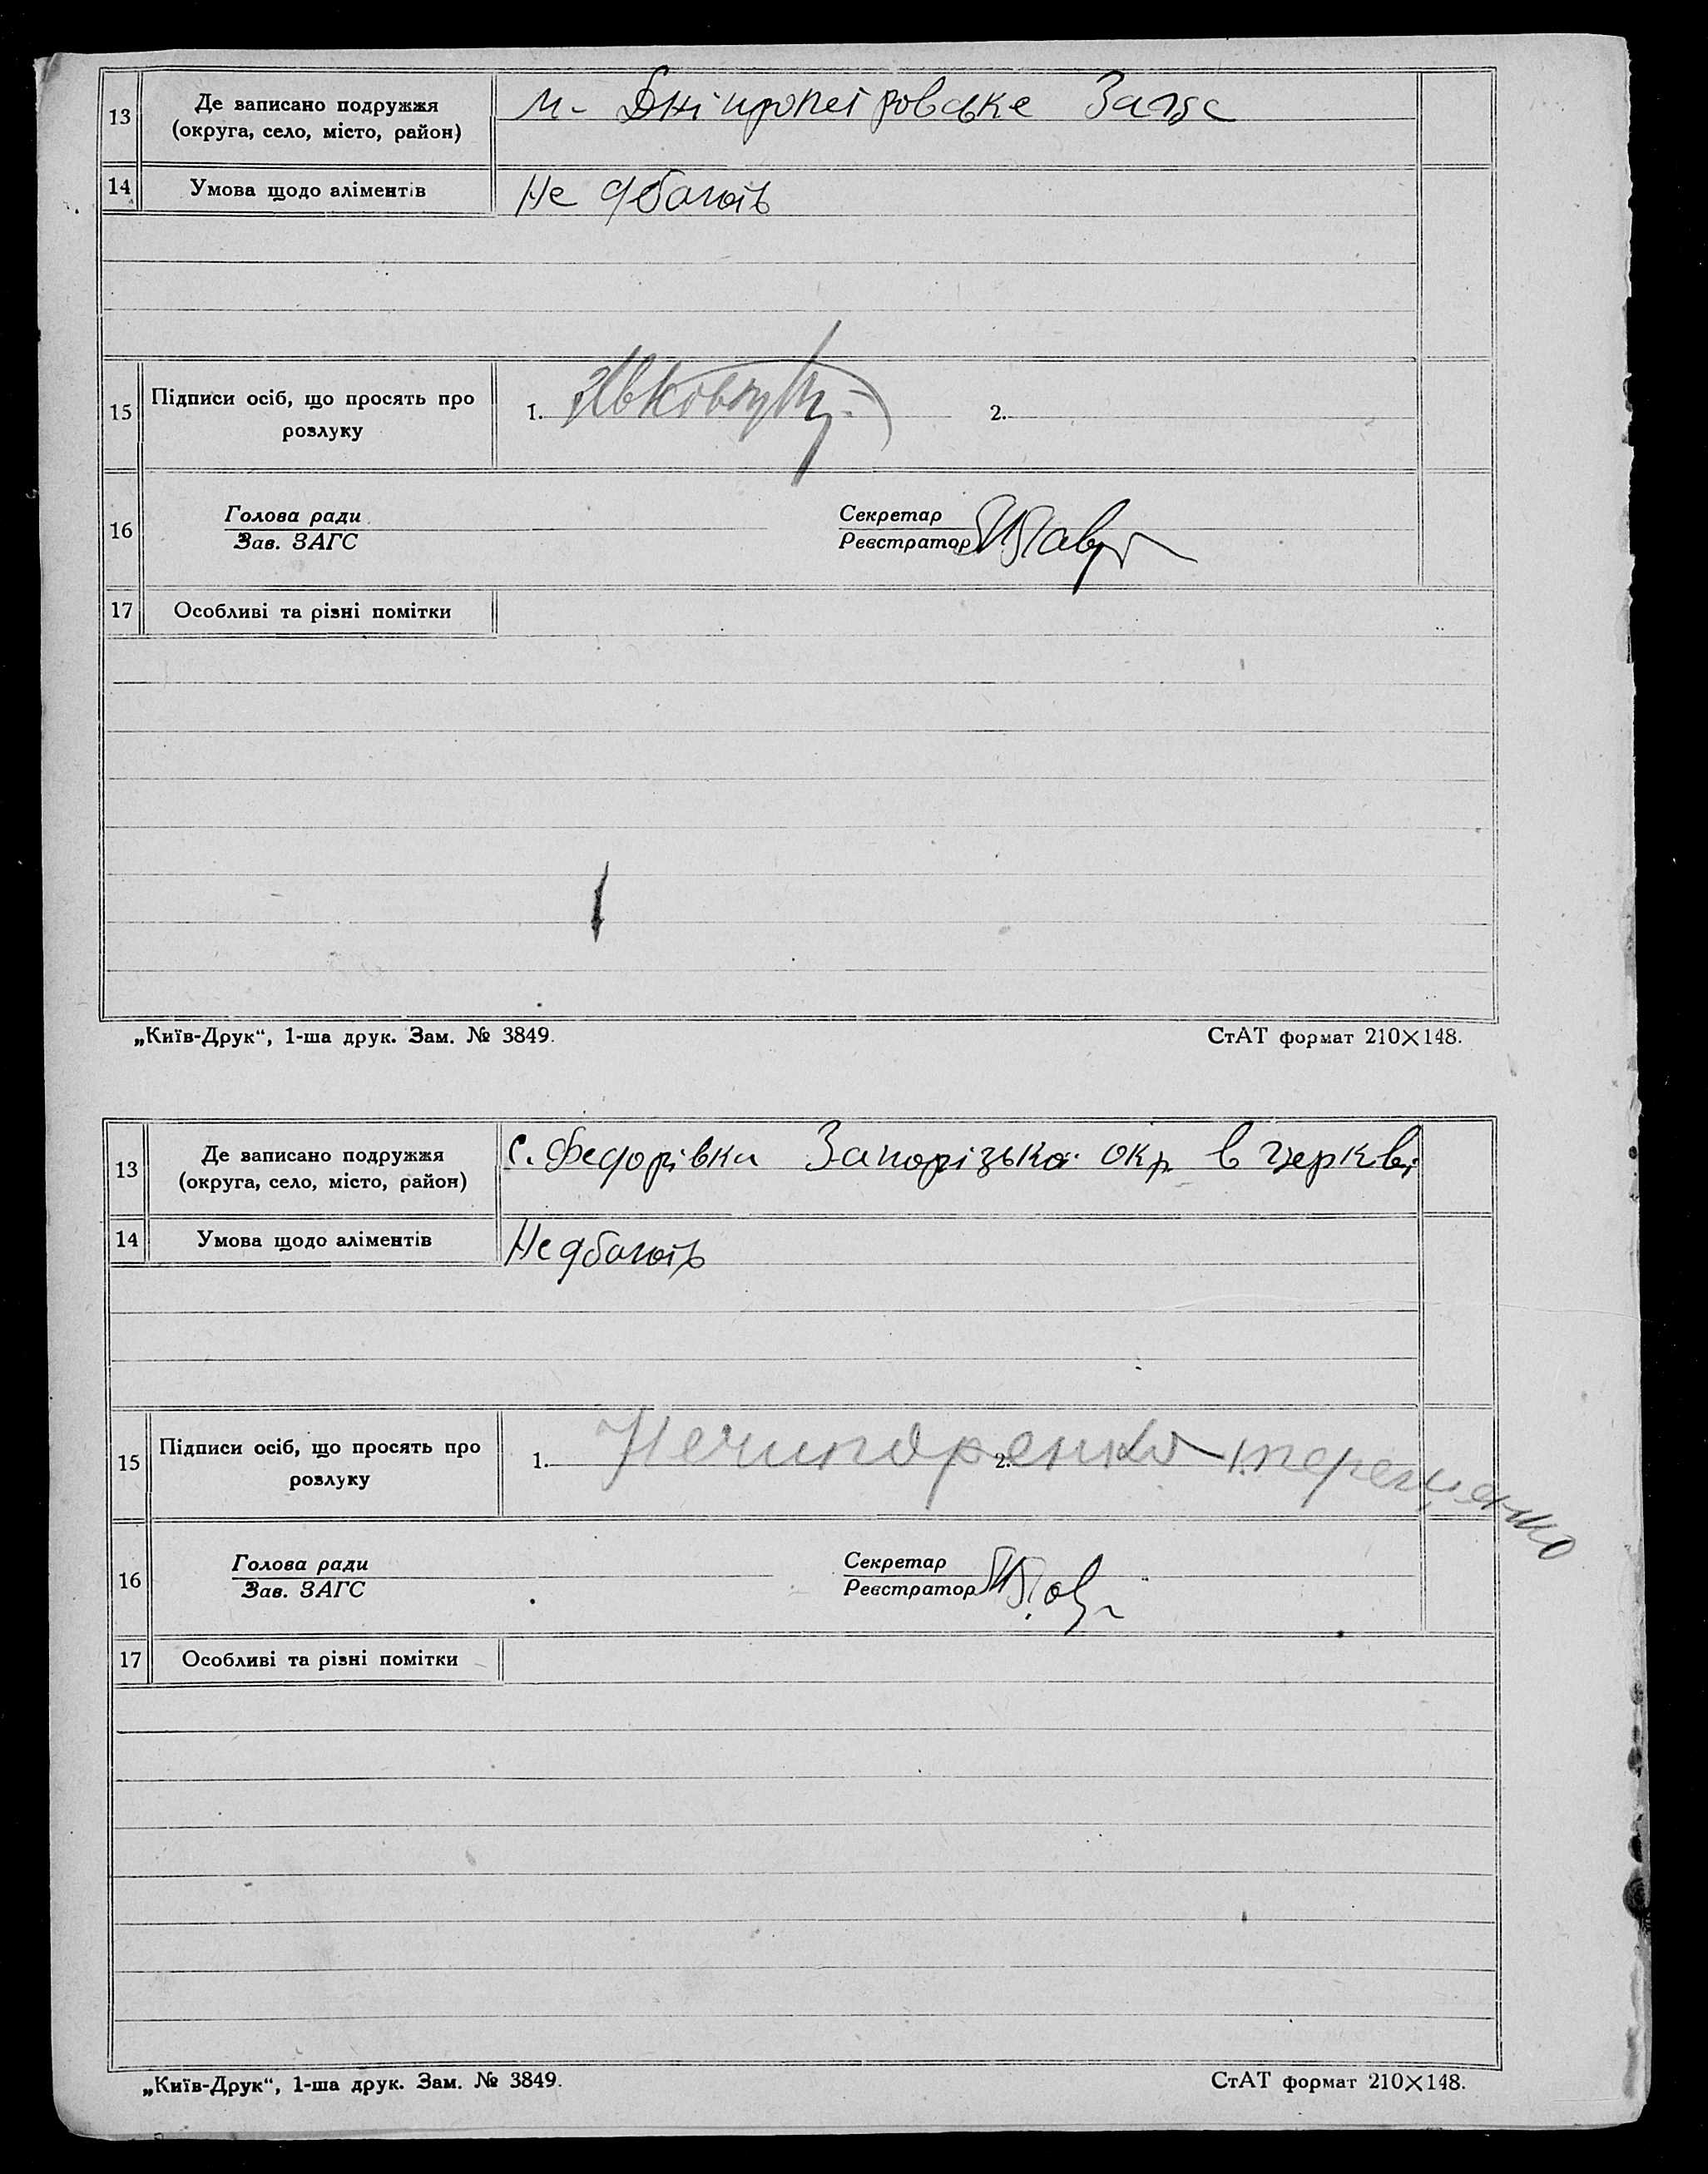 13
Де записано подружжя
(округа, село, місто, район)
м. Дніпропетровське Загс
14
Умова щодо аліментів
Не дбають
15
Підписи осіб, що просять про
розлуку
1.
2.
16
Голова ради
Зав. ЗАГС
Секретар
Реєстратор
17
Особливі та різні помітки
„Київ-Друк“, 1-ша друк. Зам. № 3849.
СтАТ формат 210×148.
13
Де записано подружжя
(округа, село, місто, район)
с. Федорівка Запорізької окр. в церкві
14
Умова щодо аліментів
Не дбають
15
Підписи осіб, що просять про
розлуку
1. Нечипоренко
2. терещенко
16
Голова ради
Зав. ЗАГС
Секретар
Реєстратор
17
Особливі та різні помітки
„Київ-Друк“, 1-ша друк. Зам. № 3849.
СтАТ формат 210×148.